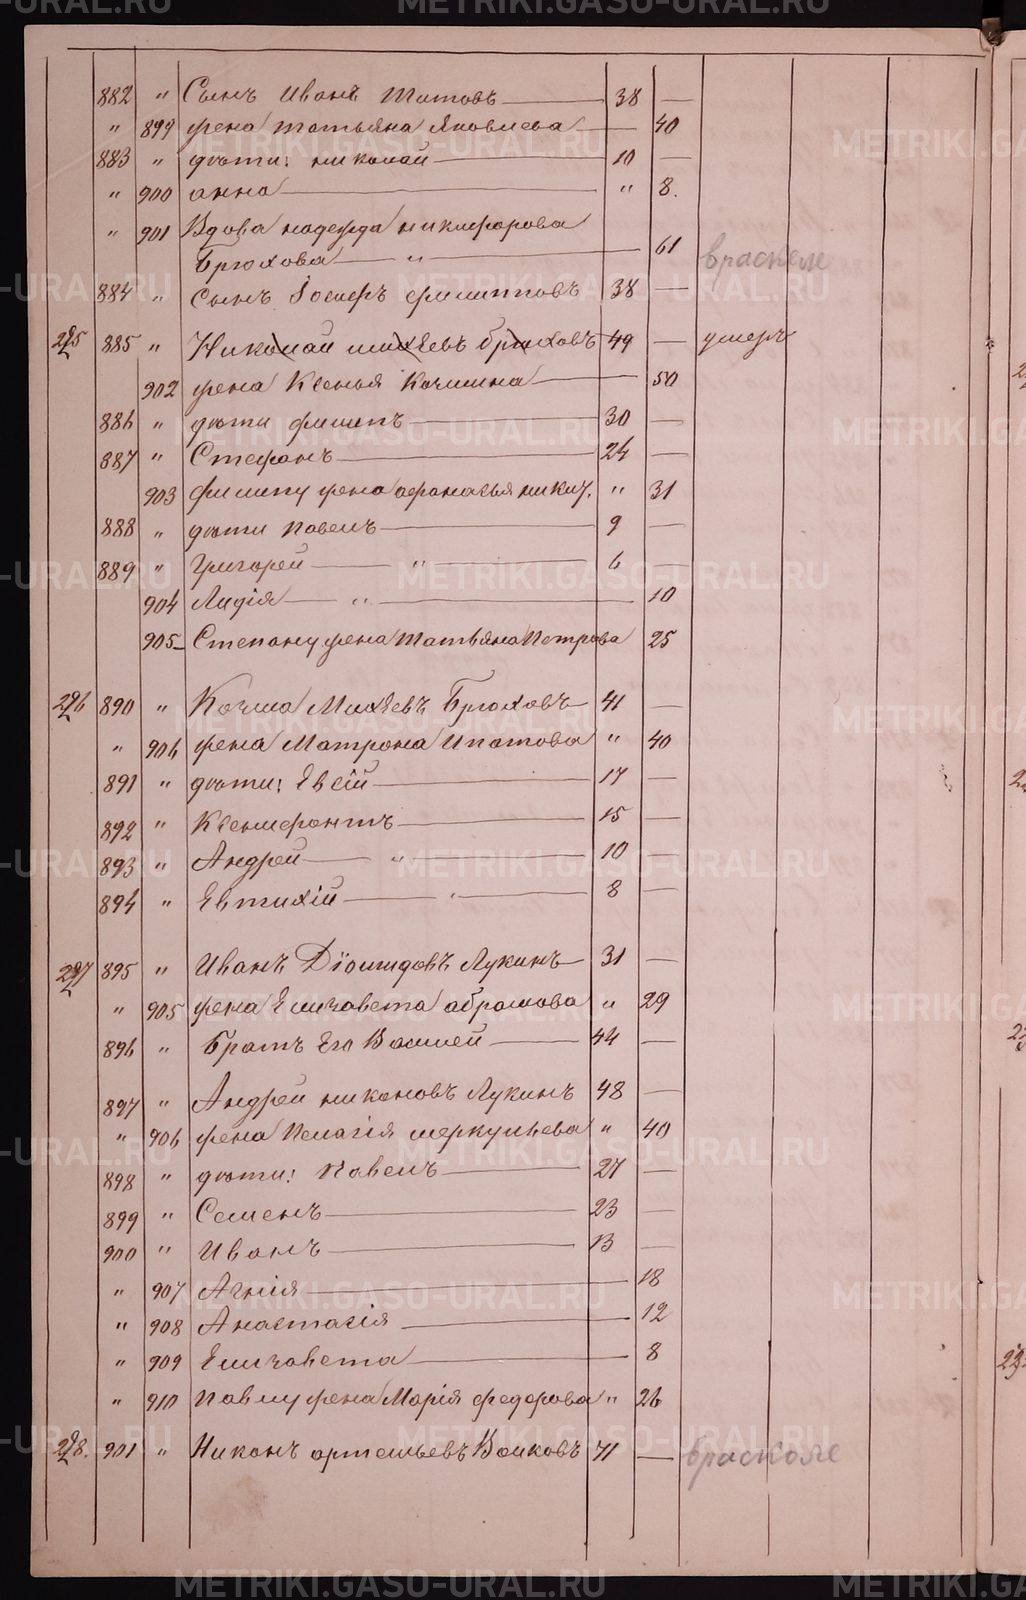 882 " Сынъ Иванъ Титовъ 38 —
" 899 жена Татьяна Яковлева — 40
883 " дѣти: николай 10 —
" 900 анна " 8.
" 901 Вдова надежда никифорова
Брюхова — " — 61 врасколе
884 " Сынъ Іосифъ филиповъ 38 —
295 885 " Николай михѣевъ брюховъ 49 — умеръ
902 жена Ксенья Козмина 50
886 " дѣти филипъ 30 —
887 " Стефанъ 24 —
903 филипу жена афонасья никит. " 31
888 " дѣти Павелъ 9 —
889 " Григорей — " — 6 —
904 Лидія — " — 10
905 Степану жена Татьяна Петрова 25
296 890 " Козма Михѣевъ Брюховъ 41 —
" 906 жена Матрона Ипатова " 40
891 " дѣти: Евсій 17 —
892 " Ксенофонтъ 15 —
893 " Андрей — " — 10 —
894 " Евтихій — " — 8 —
297 895 " Иванъ Діомидовъ Лукинъ 31 —
" 905 жена Елизавета абрамова " 29
896 " Братъ Его Василей 44 —
897 " Андрей никоновъ Лукинъ 48 —
" 906 жена Пелагія меркульева " 40
898 " дѣти: Павелъ 27 —
899 " Семенъ 23 —
900 " Иванъ 13 —
" 907 Агнія 18
" 908 Анастасія 12
" 909 Елизавета 8
" 910 Павлу жена Марія федорова " 26
298. 901 " Никонъ артемьевъ Волковъ 71 — врасколе
METRIKI.GASO-URAL.RU